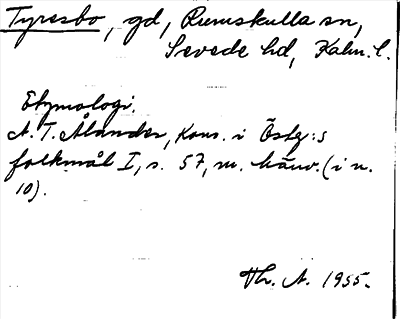 Tyresbo, gd, Rumskulla sn,
Sevede hd, Kalm. l.
Etymologi.
A. T. Ålander, Kons. i Östg:s
folkmål I, s. 57, m. hänv. (i n.
10).
Th. A. 1955.